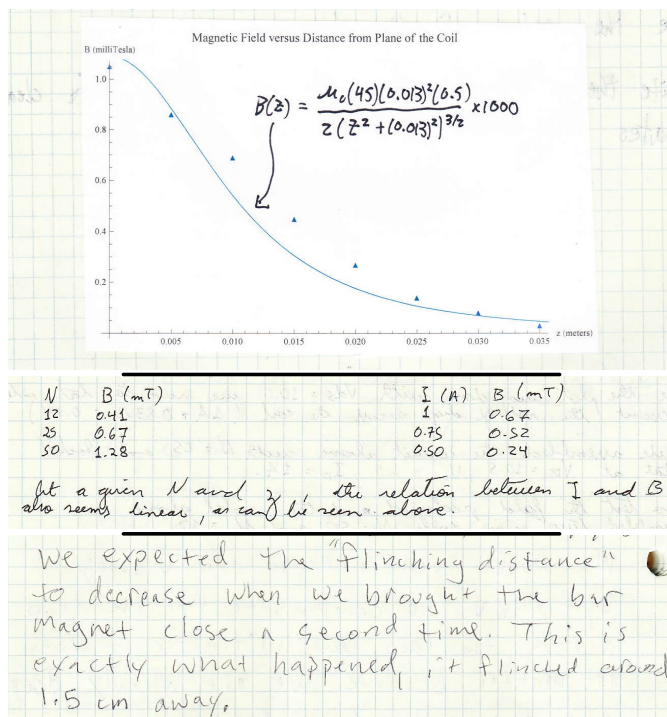 Magnetic Field versus Distance from Plane of the Coil
B (milliTesla)
1.0
0.8
0.6
0.4
0.2
B(z) = μ₀(45)(0.013)²(0.5) / 2(z² + (0.013)²)^3/2 × 1000
0.005 0.010 0.015 0.020 0.025 0.030 0.035
z (meters)
N B (mT) I (A) B (mT)
12 0.41 1 0.67
25 0.67 0.75 0.52
50 1.28 0.50 0.24
At a given N and z, the relation between I and B
also seems linear, as can be seen above.
We expected the "flinching distance"
to decrease when we brought the bar
magnet close a second time. This is
exactly what happened, it flinched around
1.5 cm away.